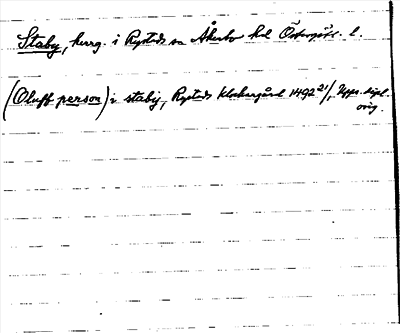 Staby, herrg. i Rystads sn Åkerbo hd Östergötl. l.
(Oluff person) i stabij, Rystads klockargård 1492 21/, Upps. dipl.
orig.